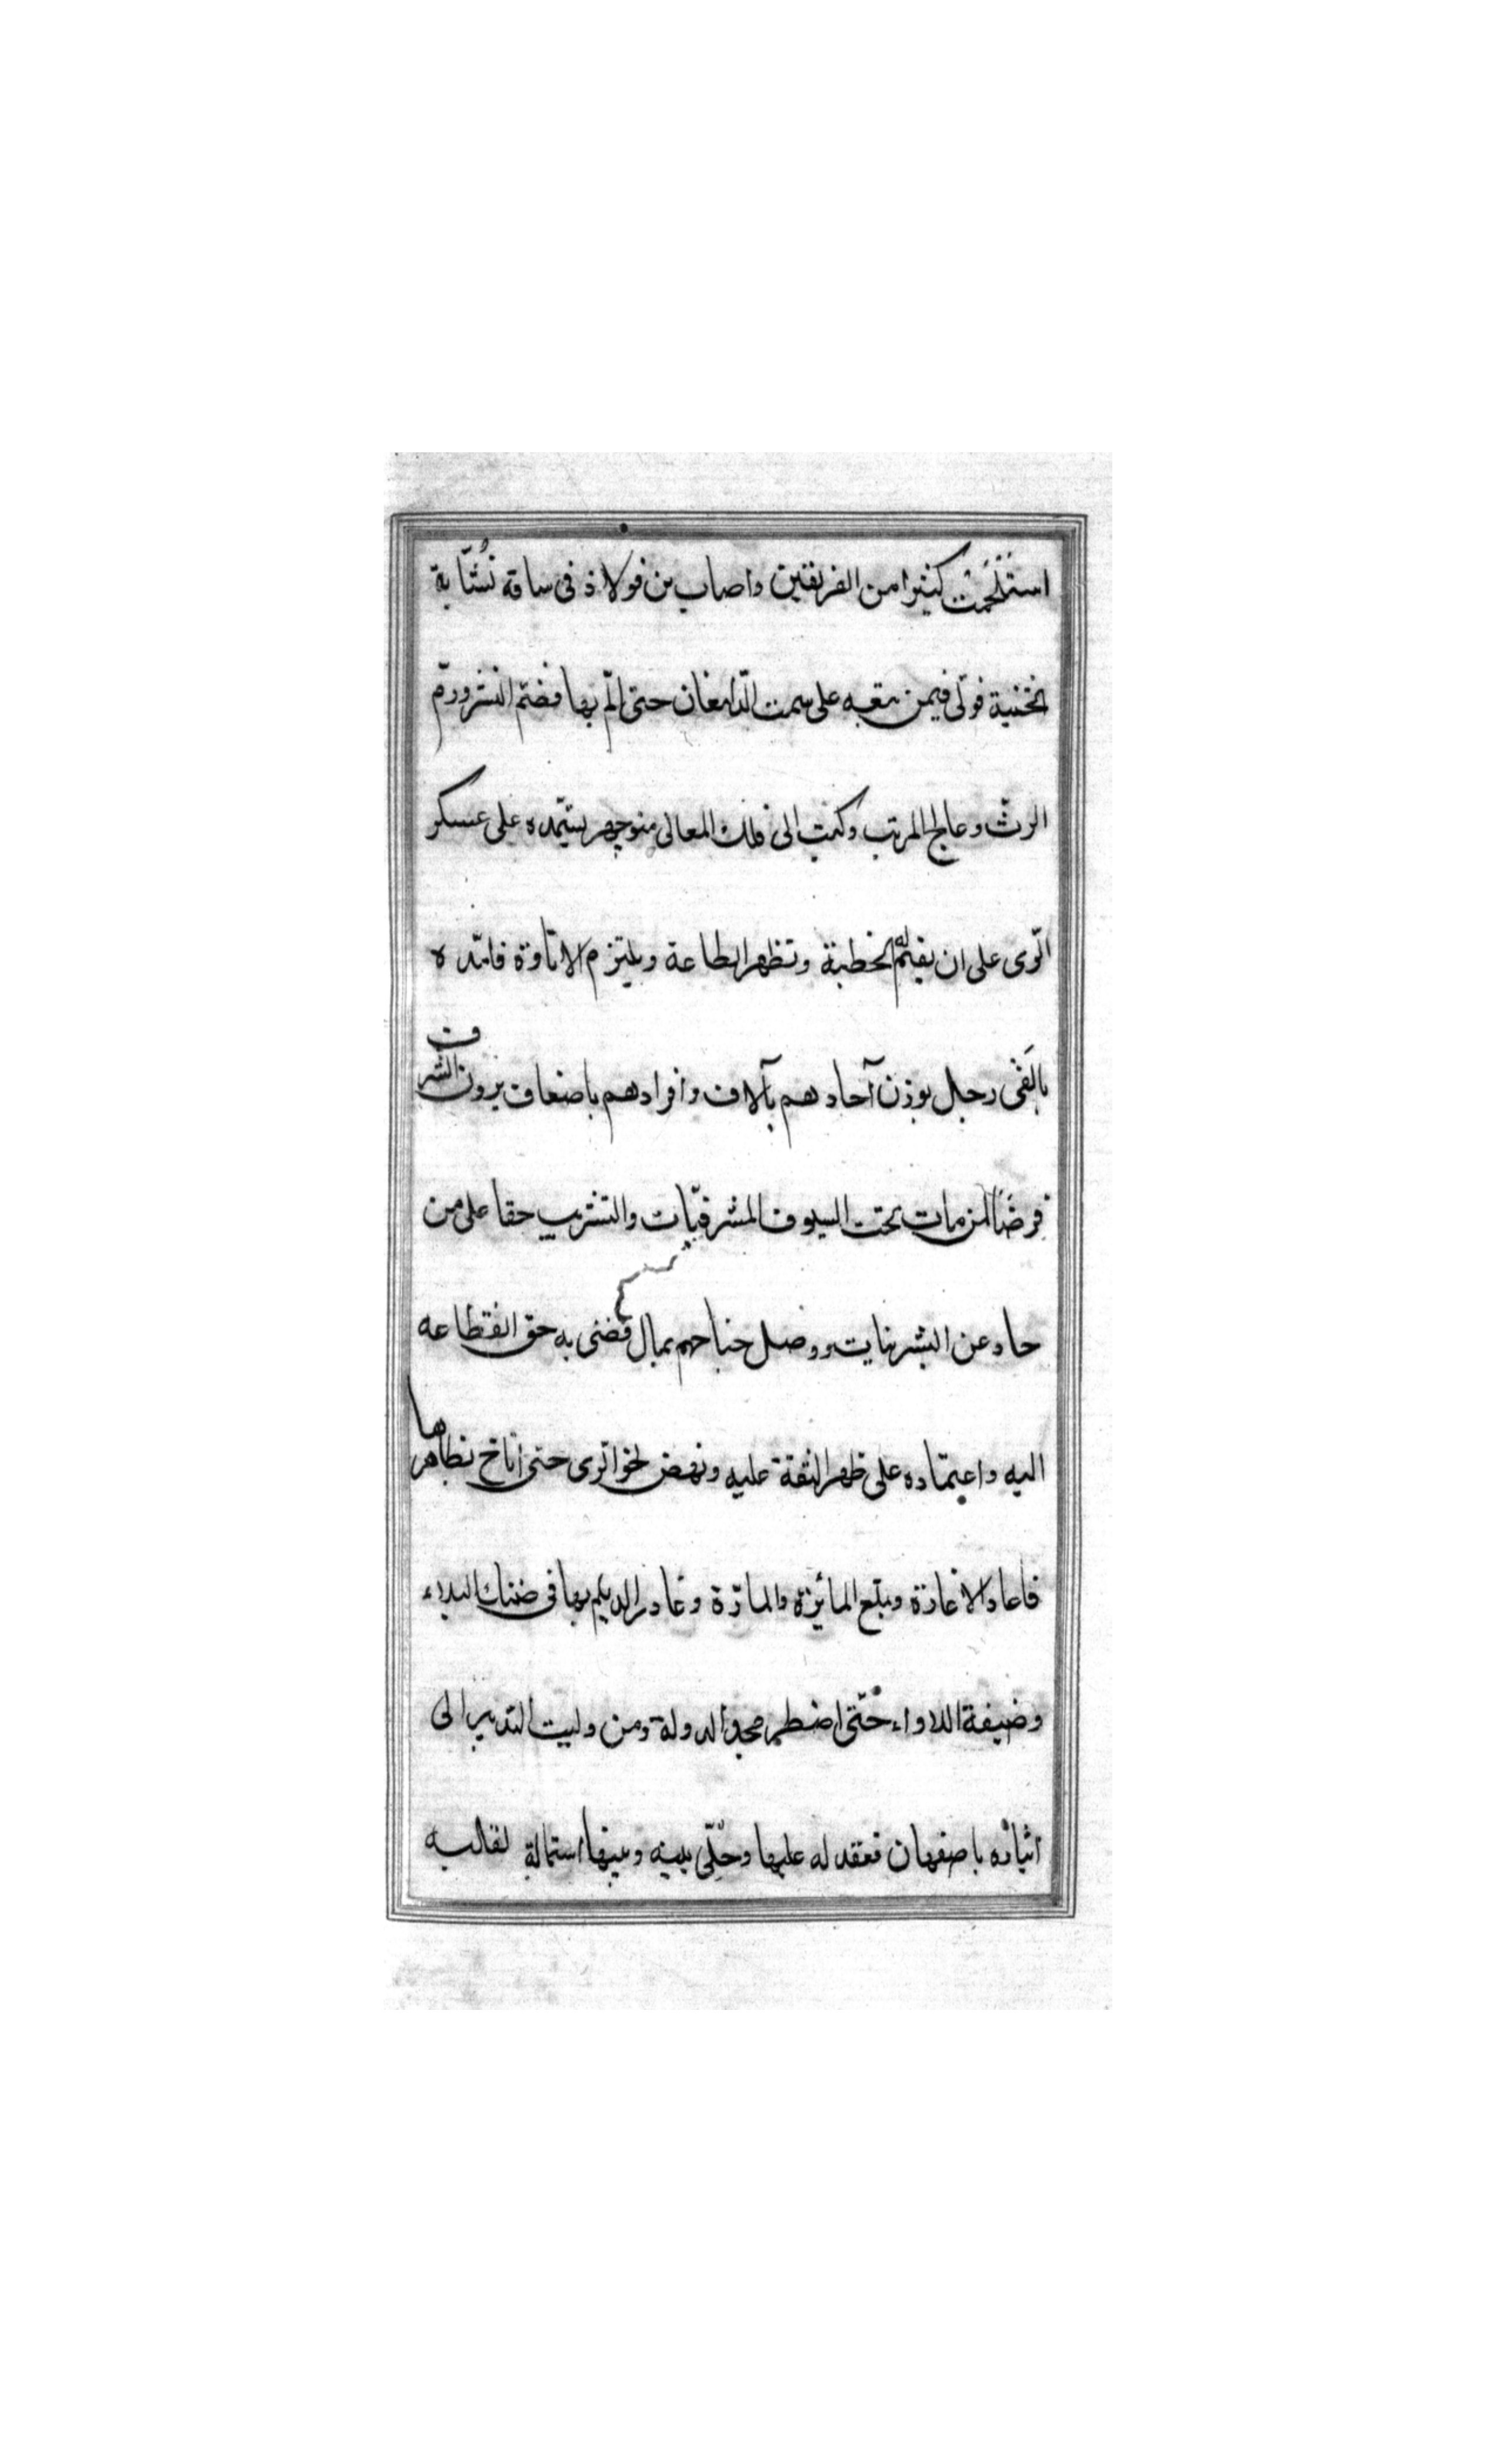 استَلْحَمَتْ كثيرا من الفريقين واصاب بن فولاذ فى ساقه نُشّابة
اثخنته فولّى فيمن معه على سمت الدّامغان حتى المّ بها فضمّ النشر ورمّ
الرثّ وعالج المرتب وكتب الى فلك المعالى منوچهر يستمّده على عسكر
الرّى على ان يقيم له الخطبة وتظهر الطاعة ويلتزم الاتاوة فامدّه
بالفَى رجل يوزن آحادهم بآلاف وافرادهم باضعاف يرون الشرف
فرضًا لمن مات تحت السيوف المشرفيّات والتثريب حقا على من
حاد عن البشر بنايت ووصل جناحهم بمال قضى به حق انقطاعه
اليه واعتماده على ظهر الثقة عليه ونهض نحو الرى حتى اناخ بظاهرها
فاعاد الاغارة ومنع المائرة والمارّة وغادر الديلم بها فى ضنك البلاء
وضيفة اللاواء حتّى اضطر مجد الدولة ومن وليت التدبير الى
اثاره باصفهان فعقد له عليها وخلّى بينه وبينها استمالة لقالبه